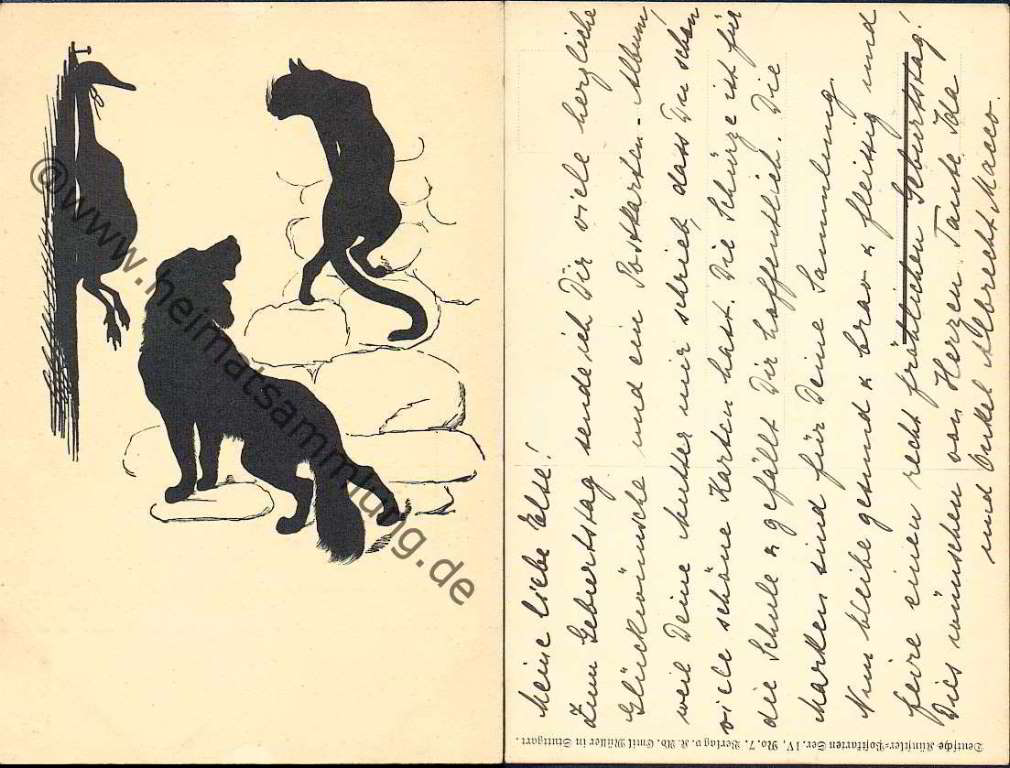 @www.heimatsammlung.de
Meine liebe Else!
Zum Geburtstag sende ich Dir viele herzliche
Glückwünsche und ein Postkarten-Album,
weil Deine Mutter mir schrieb, dass Du schon
viele schöne Karten hast. Die Schürze ist für
die Schule & gefällt Dir hoffentlich. Die
Marken sind für Deine Sammlung.
Nun bleibe gesund & brav & fleissig und
feire einen recht fröhlichen Geburtstag!
Dies wünschen von Herzen Tante Ida
und Onkel Albrecht Macco.
Deutsche Künstler-Postkarten Ser. IV. No. 7. Verlag v. K. Ad. Emil Müller in Stuttgart.